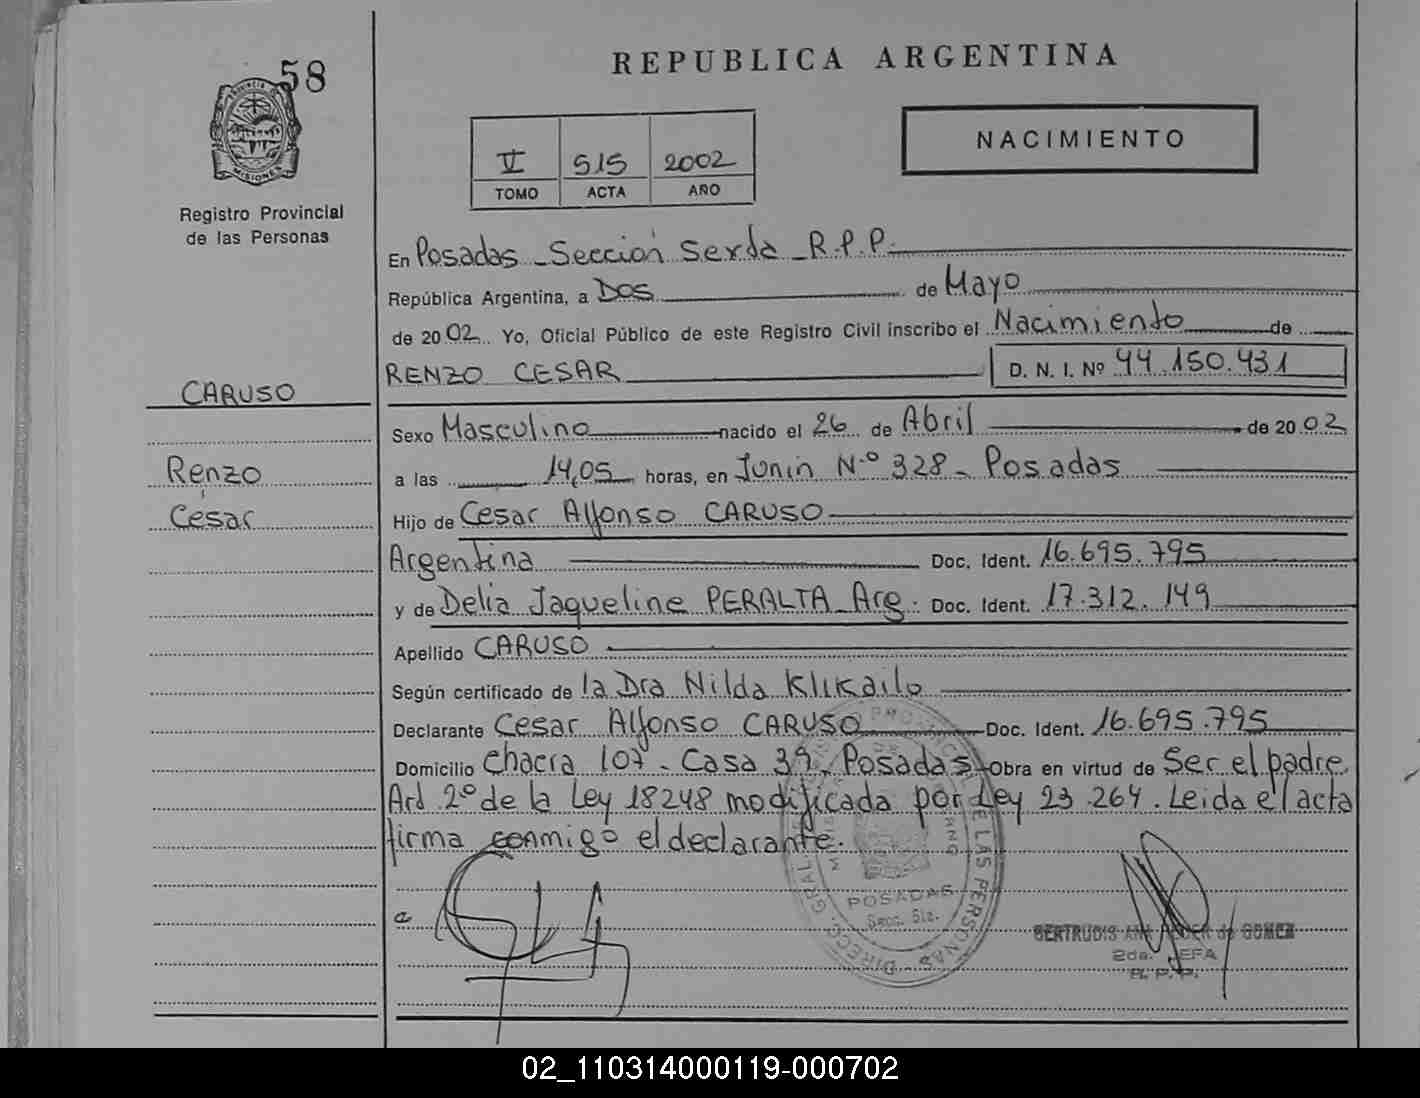 58
REPUBLICA ARGENTINA
PROVINCIA DE
MISIONES
Registro Provincial
de las Personas
V 515 2002
TOMO ACTA AÑO
NACIMIENTO
En Posadas - Sección Sexta - R.P.P.
República Argentina, a Dos de Mayo
de 2002 Yo, Oficial Público de este Registro Civil inscribo el Nacimiento de
RENZO CESAR D. N. I. Nº 44.150.431
CARUSO
Sexo Masculino nacido el 26 de Abril de 2002
Renzo
a las 14,05 horas, en Junín N.º 328 - Posadas
César
Hijo de Cesar Alfonso CARUSO
Argentina Doc. Ident. 16.695.795
y de Delia Jaqueline PERALTA Arg. Doc. Ident. 17.312.149
Apellido CARUSO
Según certificado de la Dra Nilda Klikailo
Declarante Cesar Alfonso CARUSO Doc. Ident. 16.695.795
Domicilio Chacra 107 - Casa 39, Posadas Obra en virtud de Ser el padre
Art 2º de la Ley 18248 modificada por Ley 23.264. Leida el acta
firma conmigo el declarante.
DIRECC. GRAL. DE LAS PERSONAS
POSADAS
Secc. 6ta.
GERTRUDIS de GOMEZ
2da. JEFA
R. P. P.
02_110314000119-000702